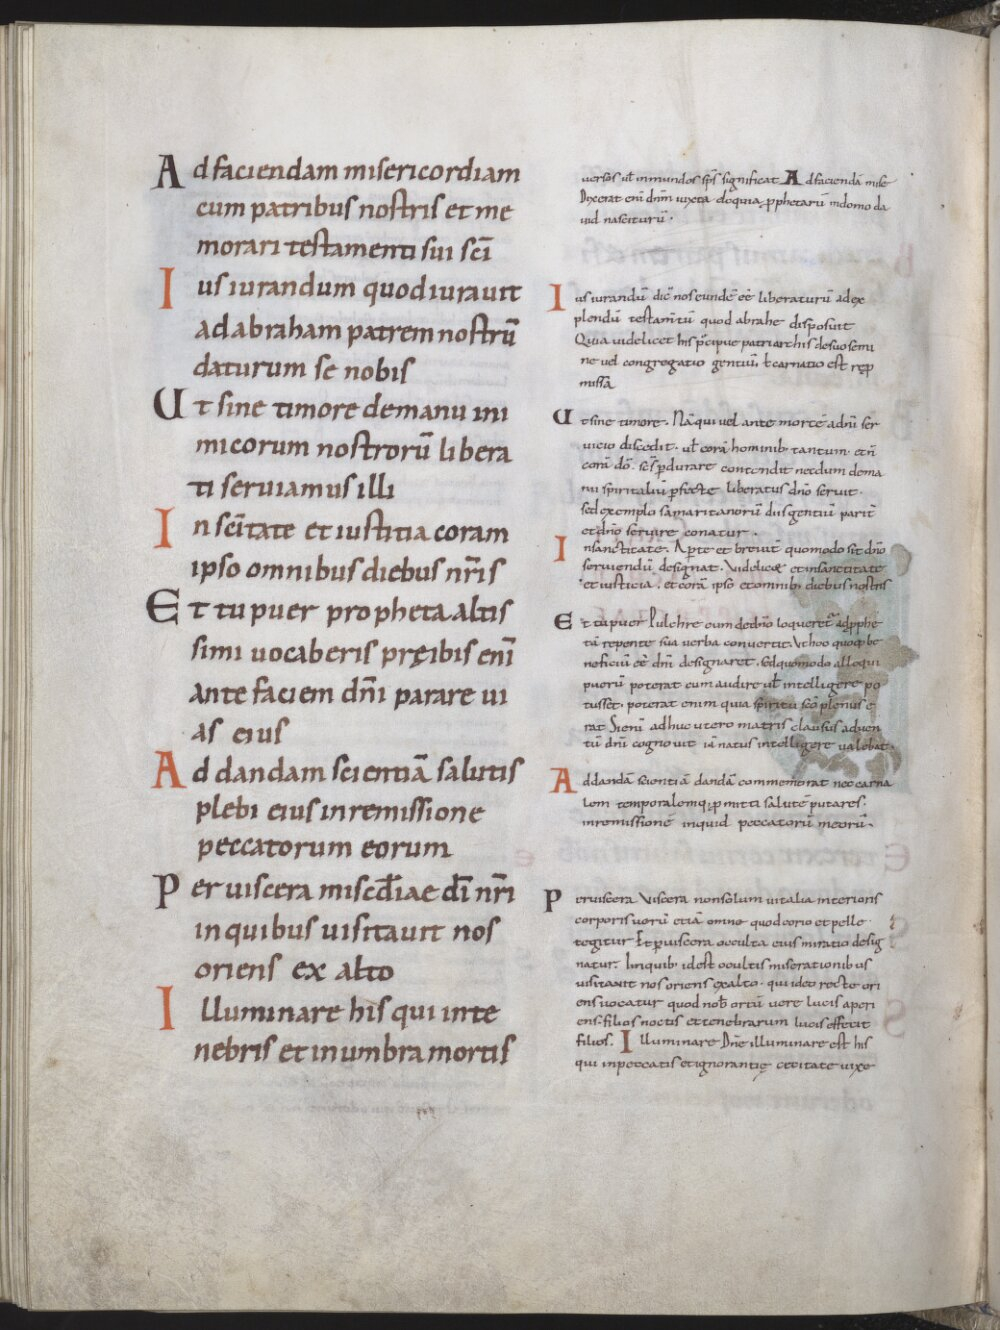 Ad faciendam misericordiam
cum patribus nostris et me
morari testamenti sui sc̄i
Ius iurandum quod iurauit
ad abraham patrem nostrū
daturum se nobis
Ut sine timore de manu ini
micorum nostrorū libera
ti seruiamus illi
In sc̄itate et iustitia coram
ipso omnibus diebus nr̄is
Et tu puer propheta altis
simi uocaberis pręibis enī
ante faciem dn̄i parare ui
as eius
Ad dandam scientiā salutis
plebi eius in remissione
peccatorum eorum
Per uiscera miscd̄iae dī nr̄i
in quibus uisitauit nos
oriens ex alto
Illuminare his qui in te
nebris et in umbra mortis
uersos ut̄ inmundos sp̄s significat Ad faciendā mise
Dixerat enī dnm̄ iuxta eloquia pphetarū indomo da
uid nasciturū.
Ius iurandū dic̄ nos eundē eē liberaturū adex
plendū testam̄tū quod abrahe disposuit
Quia uidelicet his p̄cipue patriarchis desuo semi
ne uel congregatio gentiū t̄ carnatio est rep
missa
Ut sine timore. Nā qui uel ante mortē adnī ser
uicio discedit. ut̄ corā hominib; tantum. et n̄
corā dō. se s pdurare contendit necdum dema
nu spiritaliū pfecte liberatus dn̄o seruit.
sed exemplo samaritanorū diis gentiū parit̄
et dn̄o seruire conatur.
In sanctitate. Aperte et breuit̄ quomodo sit dn̄o
seruiendū designat. Videlicet et in sanctitate
et iusticia. et corā ipso et omnib; diebus nostris
Et tu puer Pulchre cum de dn̄o loqueret̄ ad pphe
tā repente sua uerba conuertit. Vt hoc quoq; be
neficiū eē dn̄i designaret. sed quomodo alloqui
puerū poterat eum audire ut̄ intelligere po
tuisset. poterat enim quia spiritu sc̄o plenus e
rat Si enī adhuc utero matris clausus aduen
tū dn̄i cognouit iā natus intelligere ualebat.
Ad dandā scientiā dandā commemorat nec carna
lem temporalemq; pmitti salutē putares.
in remissionē inquid peccatorū meorū.
Per uiscera Viscera non solum uitalia interioris
corporis uerū etiā omne quod corio et pelle
tegitur Et p uiscera occulta eius miratio desig
natur. In quib; id est ocultis miserationibus
uisitauit nos oriens ex alto. qui ideo recte ori
ens uocatur quod nob̄ ortū uere lucis aperi
ens. filios noctis et tenebrarum lucis effecit
filios. Illuminare Dn̄e illuminare est his
qui in peccatis et ignorantię cecitate uixe